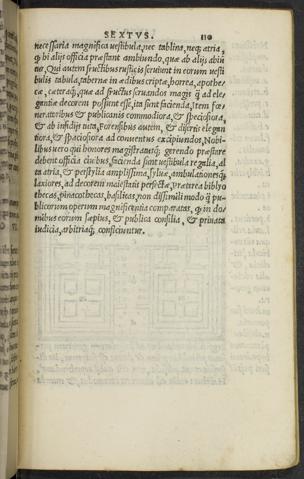 SEXTVS. 110
necessaria magnifica uestibula, nec tablina, neq; atria,
q hi alijs officia præstant ambiundo, quæ ab alijs abiũ
tur. Qui autem fructibus rusticis seruiunt in eorum uesti
bulis tabula, tabernæ in ædibus criptæ, horrea, apothe/
cæ, cæteraq;, quæ ad fructus seruandos magis q̃ ad ele/
gantiæ decorem possunt esse, ita sunt facienda, Item fœe
neratoribus & publicanis commodiora, & speciosiora,
& ab insidijs tuta, Forensibus autem, & disertis elegan
tiora, & spaciosiora ad conuentus excipiundos, Nobi/
libus uero qui honores magistratusq; gerendo præstare
debent officia ciuibus, facienda sunt uestibula regalia, al
ta atria, & peristylia amplissima, syluæ, ambulationesq;
laxiores, ad decorem maiestatis perfectæ, præterea biblyo
thecas, pinacothecas, basilicas, non dissimili modo q̃ pu
blicorum operum magnificentia comparatas, q in do/
mibus eorum sæpius, & publica consilia, & priuata
iudicia, arbitriaq; conficiuntur.